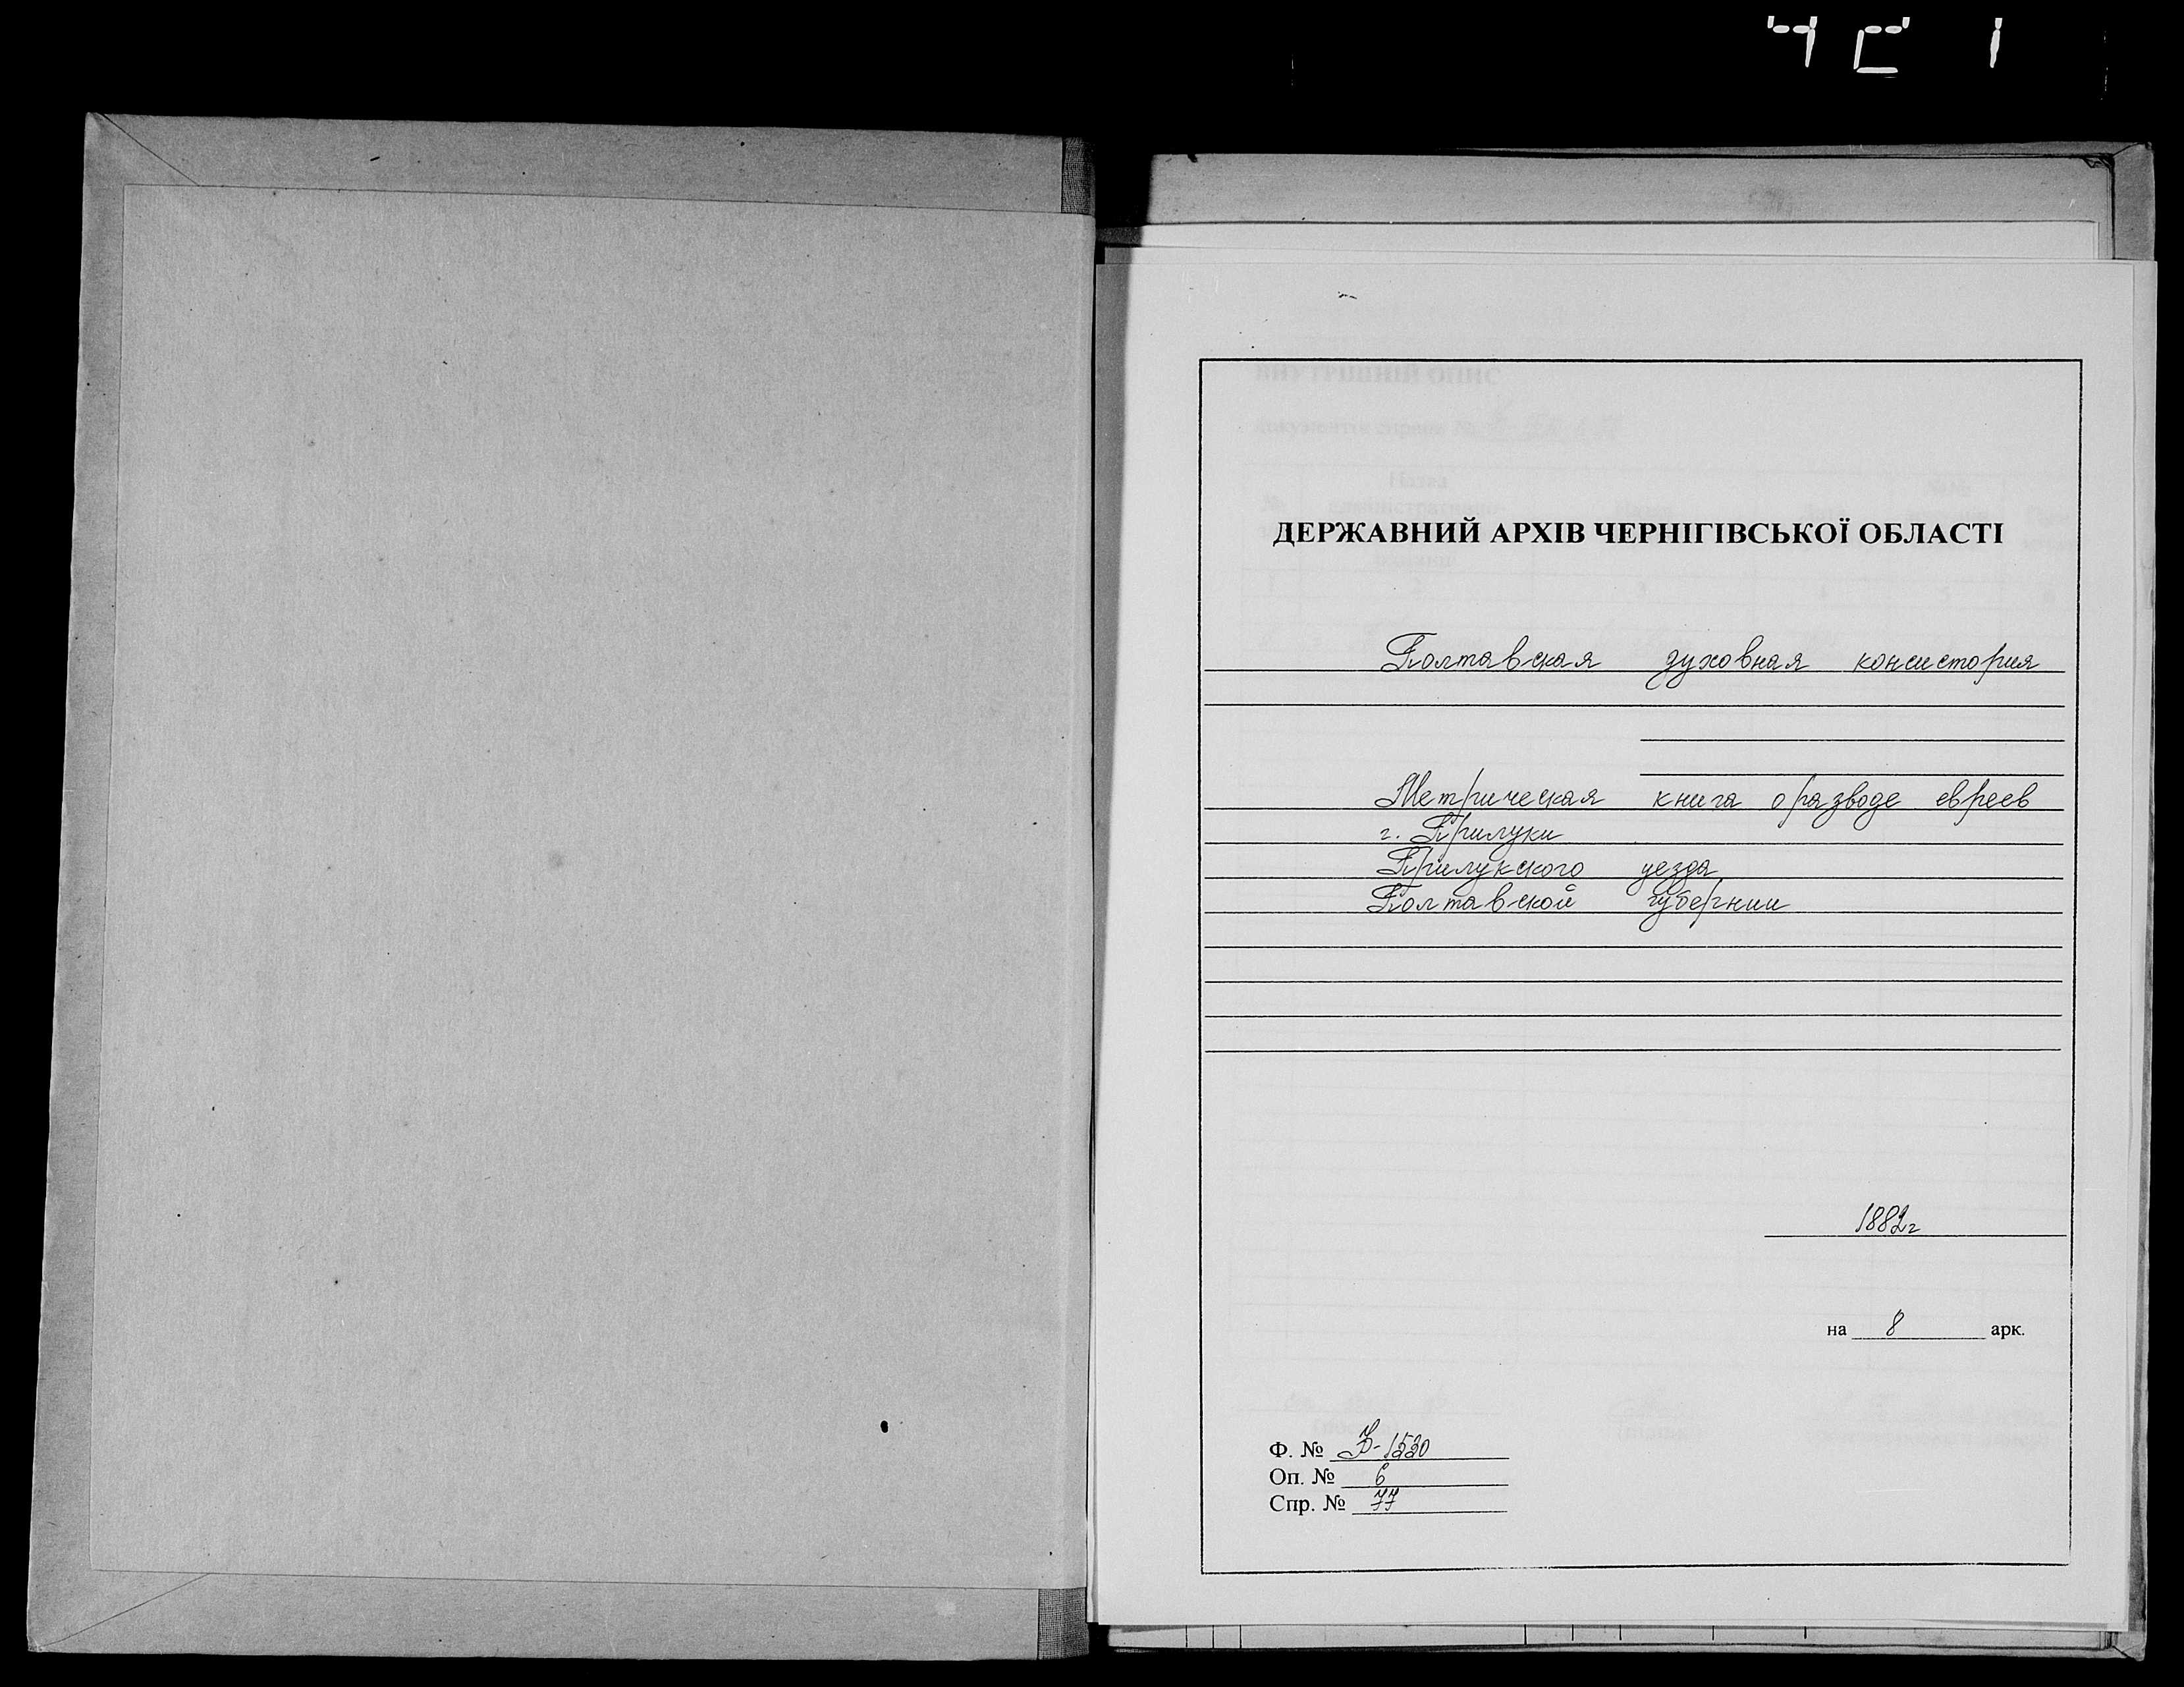 ДЕРЖАВНИЙ АРХІВ ЧЕРНІГІВСЬКОЇ ОБЛАСТІ
Полтавская духовная консистория
Метрическая книга о разводе евреев
г. Прилуки
Прилукского уезда
Полтавской губернии
1882г
на 8 арк.
Ф. №
Оп. № 6
Спр. № 77